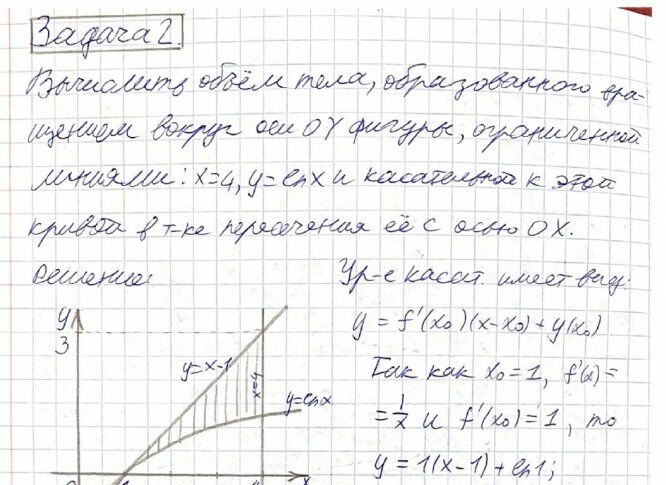 Задача 2.
Вычислить объём тела, образованного вра-
щением вокруг оси OY фигуры, ограниченной
линиями: x=4, y=lnx и касательной к этой
кривой в т-ке пересечения её с осью OX.
Решение:
Ур-е касат. имеет вид:
y = f'(x₀)(x-x₀)+y(x₀)
Так как x₀=1, f'(x)=
=1/x и f'(x₀)=1, то
y=1(x-1)+ln1;
y
3
y=x-1
x=4
y=lnx
x